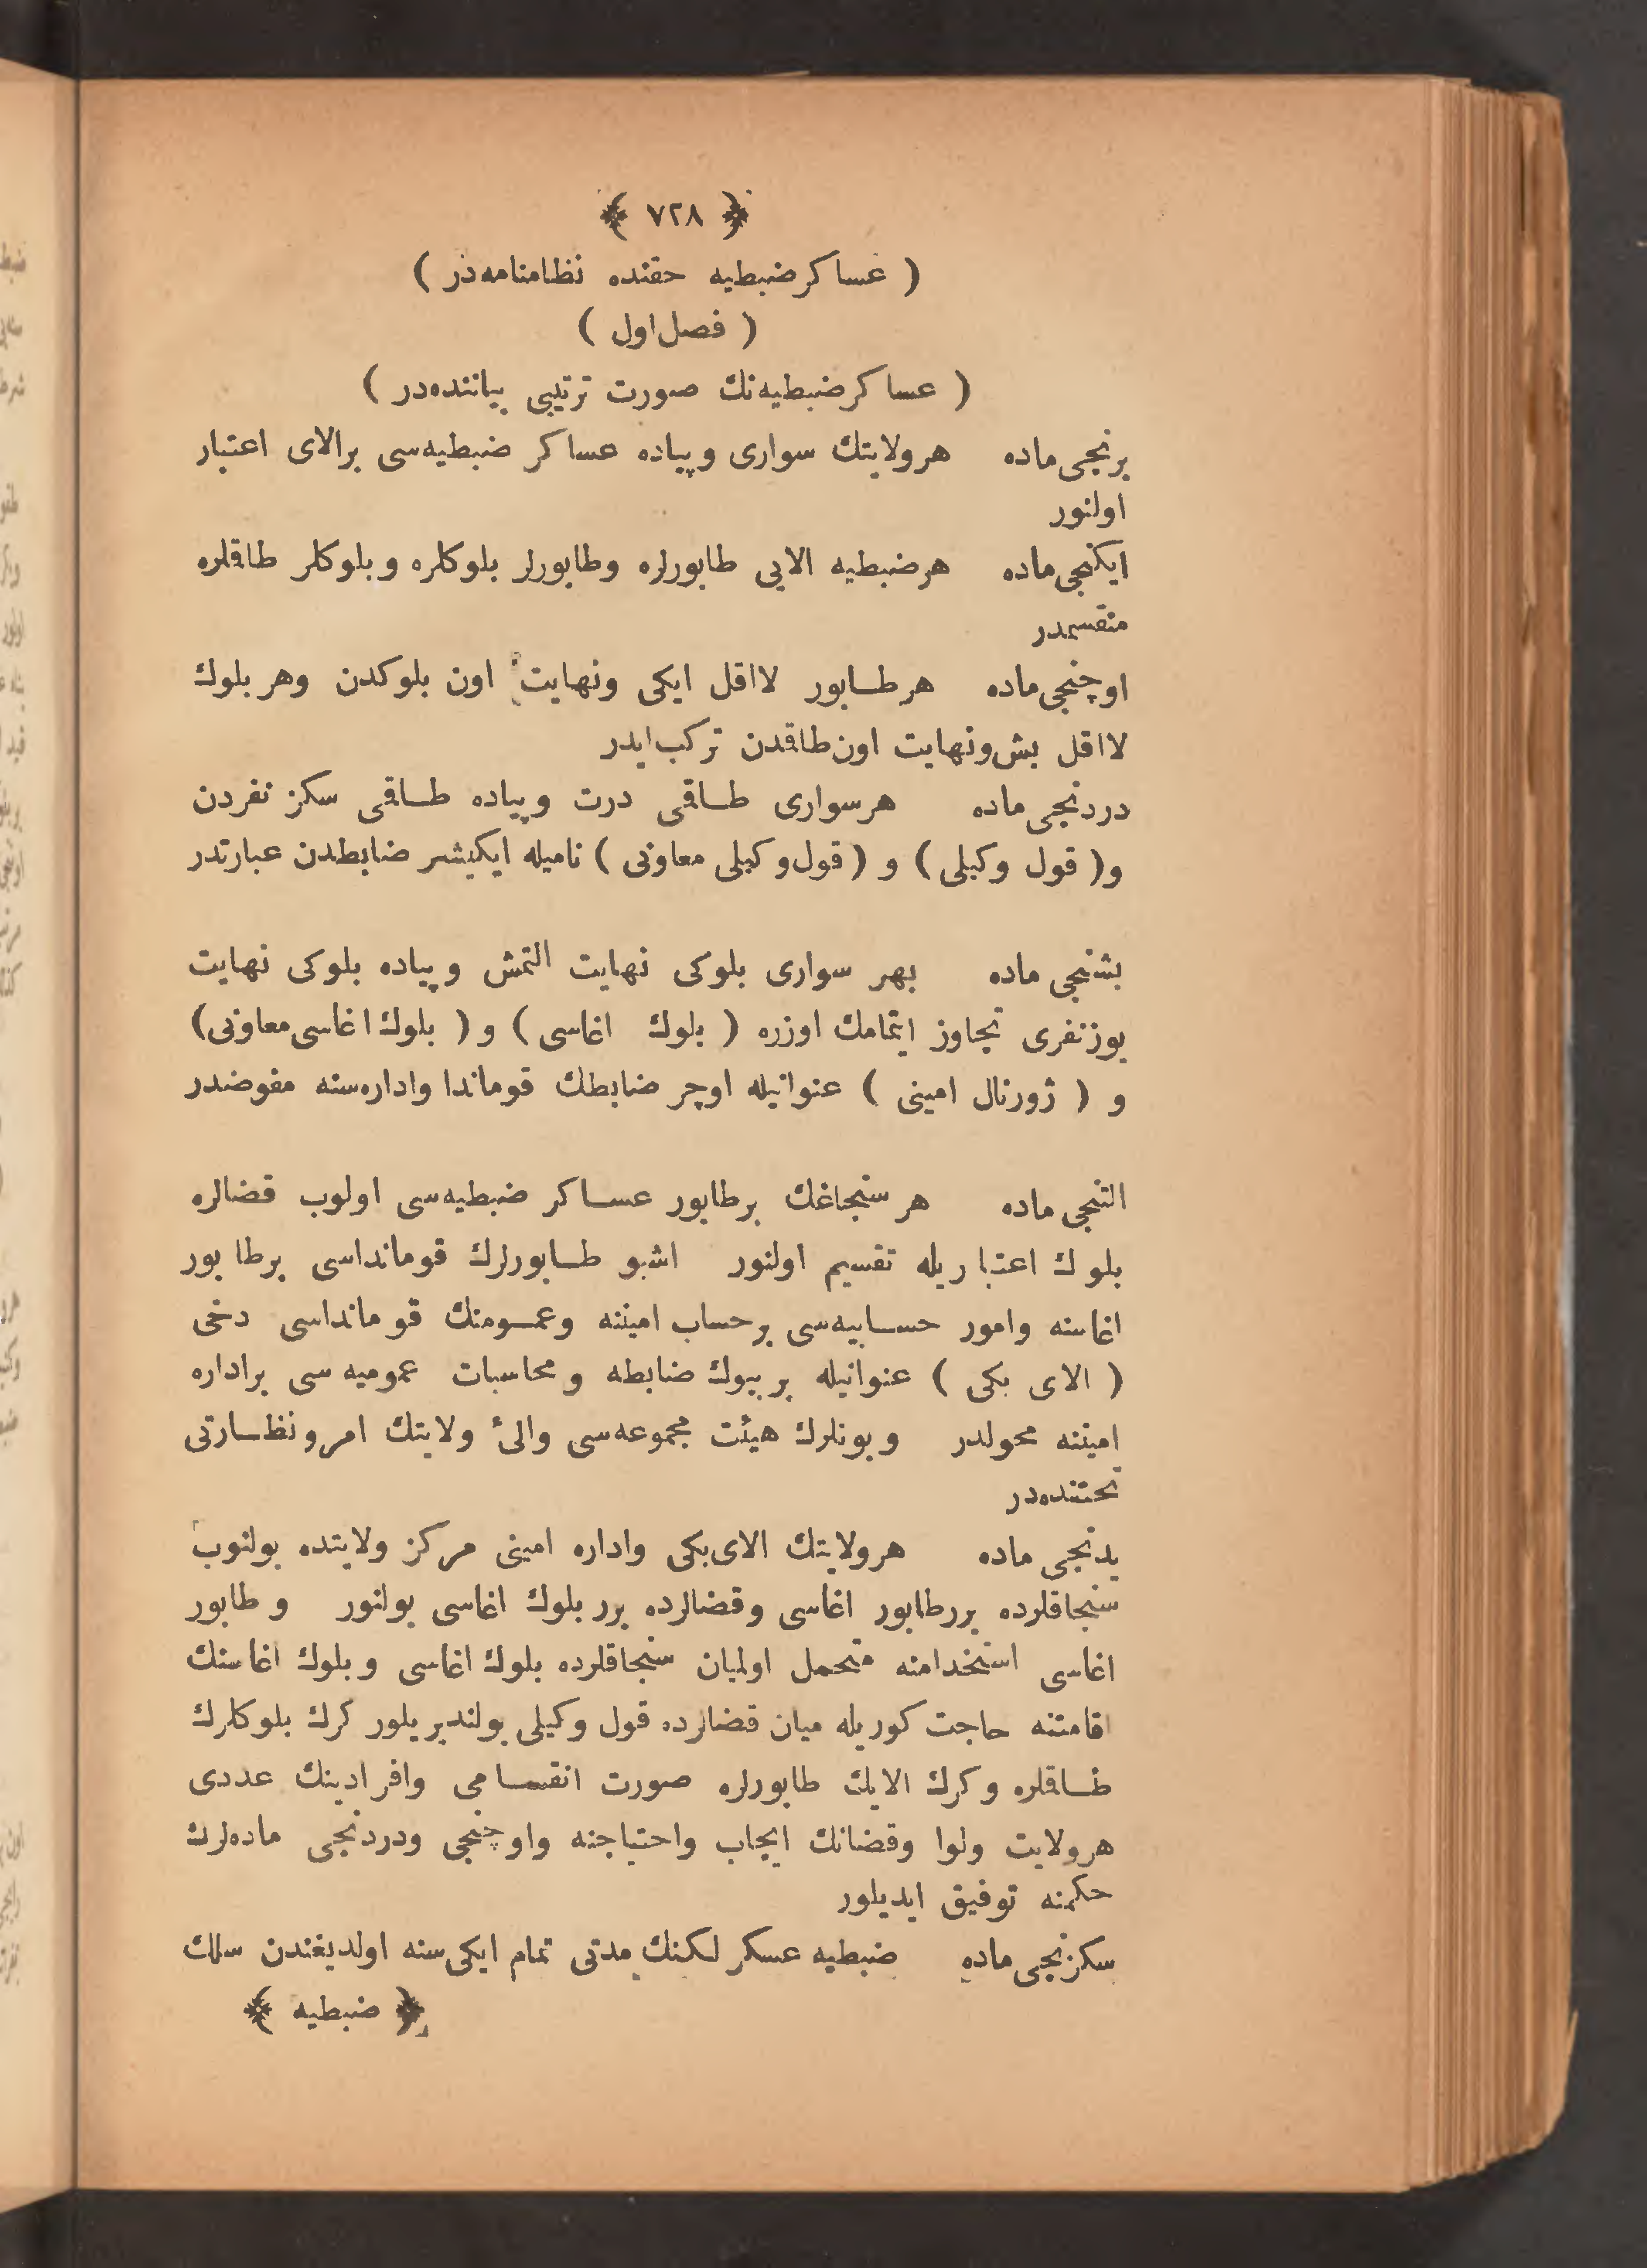 ﴿ ٧٢٨ ﴾
( عساكر ضبطيه حقنده نظامنامه‌در )
( فصل اول )
( عساكر ضبطيه‌نك صورت ترتيبى بياننده‌در )
برنجى ماده هر ولايتك سوارى وپياده عساكر ضبطيه‌سى برالاى اعتبار
اولنور
ايكنجى ماده هر ضبطيه الايى طابورلره وطابورلر بلوكلره وبلوكلر طاقلره
منقسمدر
اوچنجى ماده هر طابور لااقل ايكى ونهايت اون بلوكدن وهر بلوك
لااقل بش ونهايت اون طاقدن تركب ايدر
دردنجى ماده هر سوارى طاقى درت وپياده طاقى سكز نفردن
و( قول وكيلى ) و ( قول وكيلى معاونى ) ناميله ايكيشر ضابطدن عبارتدر
بشنجى ماده بهر سوارى بلوكى نهايت التمش وپياده بلوكى نهايت
يوز نفرى تجاوز ايتمامك اوزره ( بلوك اغاسى ) و ( بلوك اغاسى معاونى )
و ( ژورنال امينى ) عنوانيله اوچر ضابطك قوماندا واداره‌سنه مفوضدر
التنجى ماده هر سنجاغك برطابور عساكر ضبطيه‌سى اولوب قضالره
بلوك اعتباريله تقسيم اولنور اشبو طابورلرك قومانداسى برطابور
اغاسنه وامور حسابيه‌سى برحساب اميننه وعمومنك قومانداسى دخى
( الاى بكى ) عنوانيله بر بيوك ضابطه ومحاسبات عموميه‌سى براداره
اميننه محولدر وبونلرك هيئت مجموعه‌سى والئ ولايتك امر ونظارتى
تحتنده‌در
يدنجى ماده هر ولايتك الاى بكى واداره امينى مركز ولايتده بولنوب
سنجاقلرده برر طابور اغاسى وقضالرده برر بلوك اغاسى بولنور وطابور
اغاسى استخدامنه متحمل اولميان سنجاقلرده بلوك اغاسى وبلوك اغاسنك
اقامتنه حاجت كوريله ميان قضالرده قول وكيلى بولنديريلور كرك بلوكلرك
طاقلره وكرك الايك طابورلره صورت انقسامى وافرادينك عددى
هر ولايت ولوا وقضانك ايجاب واحتياجنه واوچنجى ودردنجى ماده‌لرك
حكمنه توفيق ايديلور
سكزنجى ماده ضبطيه عسكرلكنك مدتى تمام ايكى سنه اولديغندن سلك
﴿ ضبطيه ﴾